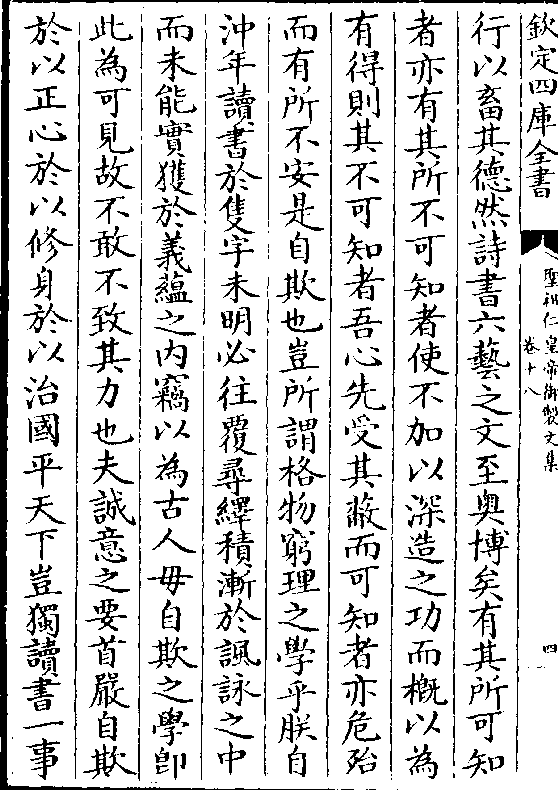 欽定四庫全書
聖祖仁皇帝御製文集
卷十八
四
行以畜其德然詩書六藝之文至奧博矣有其所可知
者亦有其所不可知者使不加以深造之功而概以為
有得則其不可知者吾心先受其蔽而可知者亦危殆
而有所不安是自欺也豈所謂格物窮理之學乎朕自
沖年讀書於隻字未明必往覆尋繹積漸於諷詠之中
而未能實獲於義蘊之内竊以為古人毋自欺之學卽
此為可見故不敢不致其力也夫誠意之要首嚴自欺
於以正心於以修身於以治國平天下豈獨讀書一事